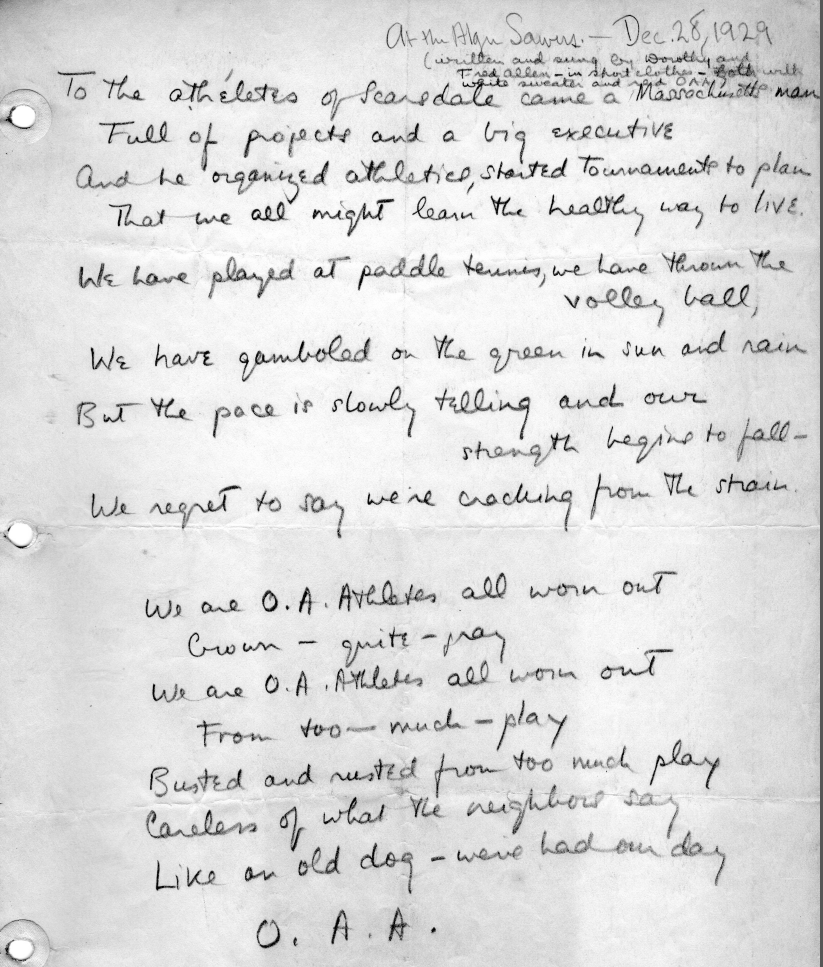 At the Algn Sawers. — Dec. 28, 1929
(written and sung by Dorothy and
Fred Allen – in short clothes – both with
white sweater and red O.A.A.
To the athéletes of Scarsdale came a Massachusetts man
Full of projects and a big executive
And he organized athletics, started Tournaments to plan
That we all might learn the healthy way to live.
We have played at paddle tennis, we have thrown the
volley ball,
We have gamboled on the green in sun and rain
But the pace is slowly telling and our
strength begins to fall –
We regret to say we're cracking from the strain.
We are O.A. Athletes all worn out
Grown – quite – gray
We are O.A. Athletes all worn out
From too – much – play
Busted and rusted from too much play
Careless of what the neighbors say
Like an old dog – we've had our day
O. A. A.